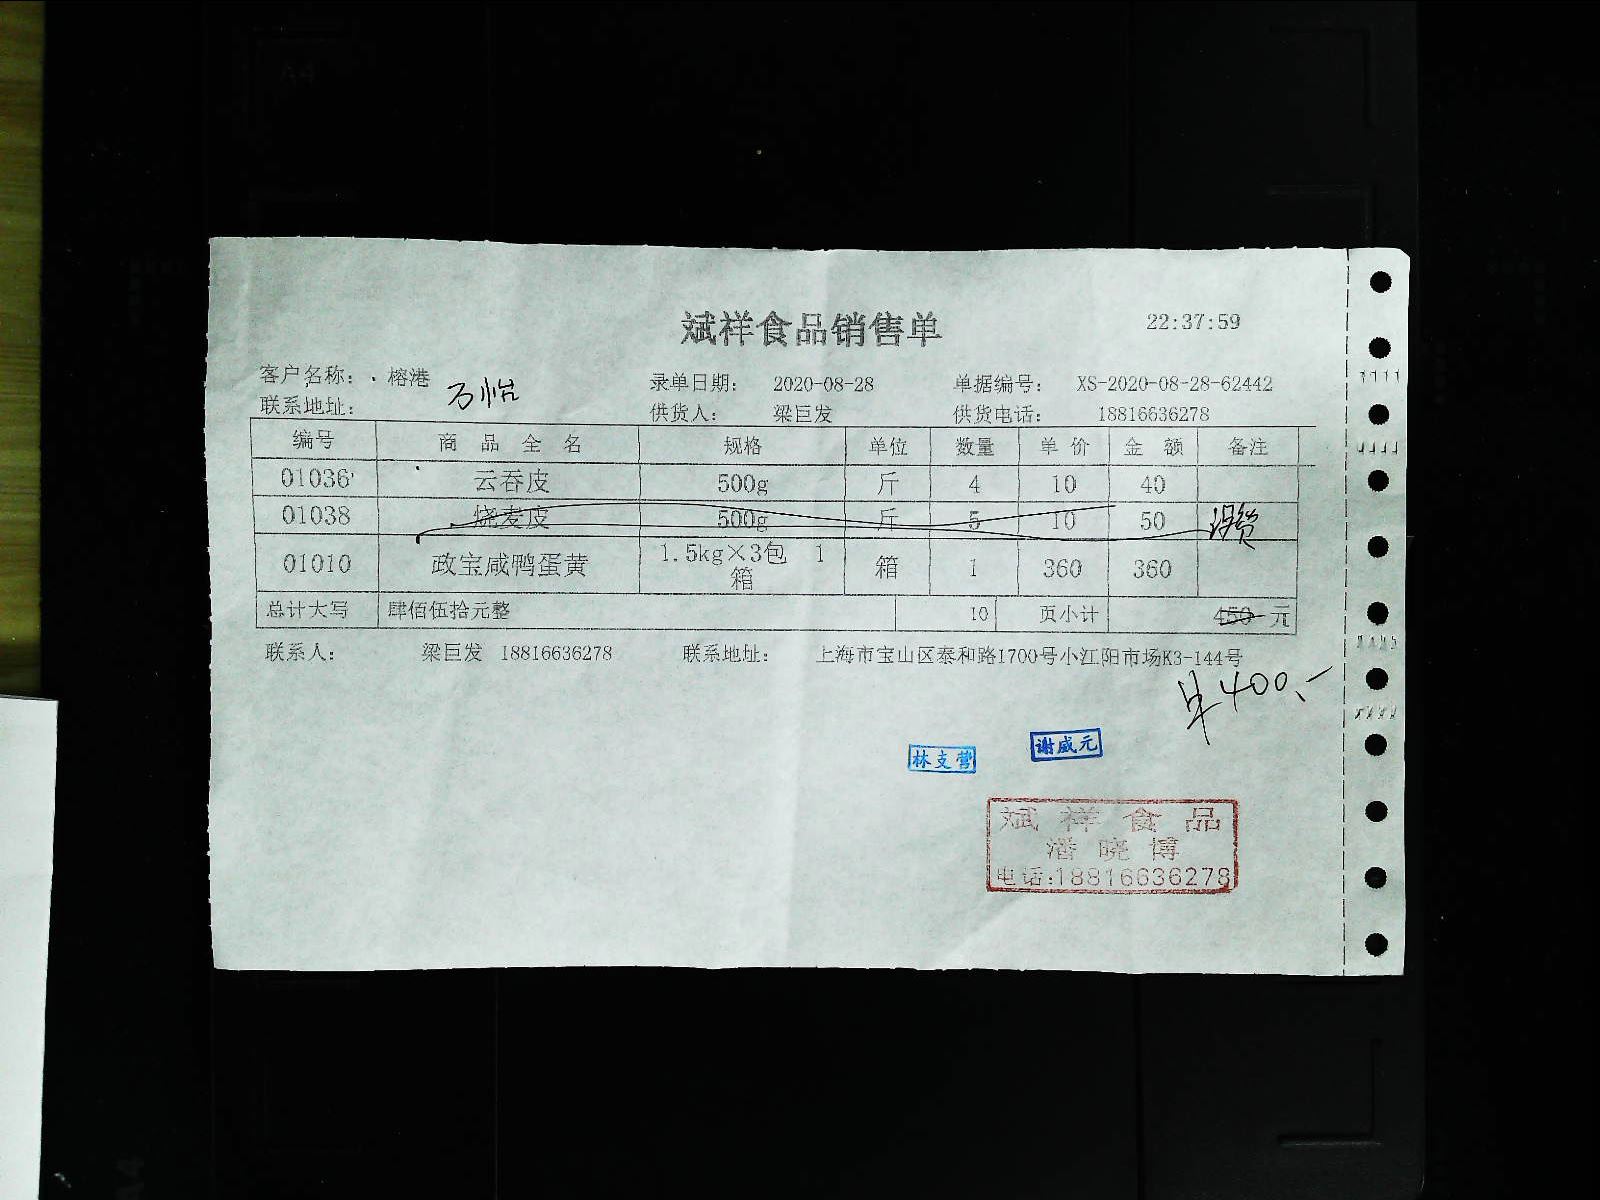 斌祥食品销售单 22:37:59
客户名称: 榕港 录单日期: 2020-08-28 单据编号: XS-2020-08-28-62442
万怡
联系地址: 供货人: 梁巨发 供货电话: 18816636278
编号 商品全名 规格 单位 数量 单价 金额 备注
01036 云吞皮 500g 斤 4 10 40
01038 烧麦皮 500g 斤 5 10 50 没货
01010 政宝咸鸭蛋黄 1.5kg×3包 1箱 箱 1 360 360
总计大写 肆佰伍拾元整 10 页小计 450 元
联系人: 梁巨发 18816636278 联系地址: 上海市宝山区泰和路1700号小江阳市场K3-144号
400.-
林支营 谢威元
斌祥食品
潘晓博
电话:18816636278